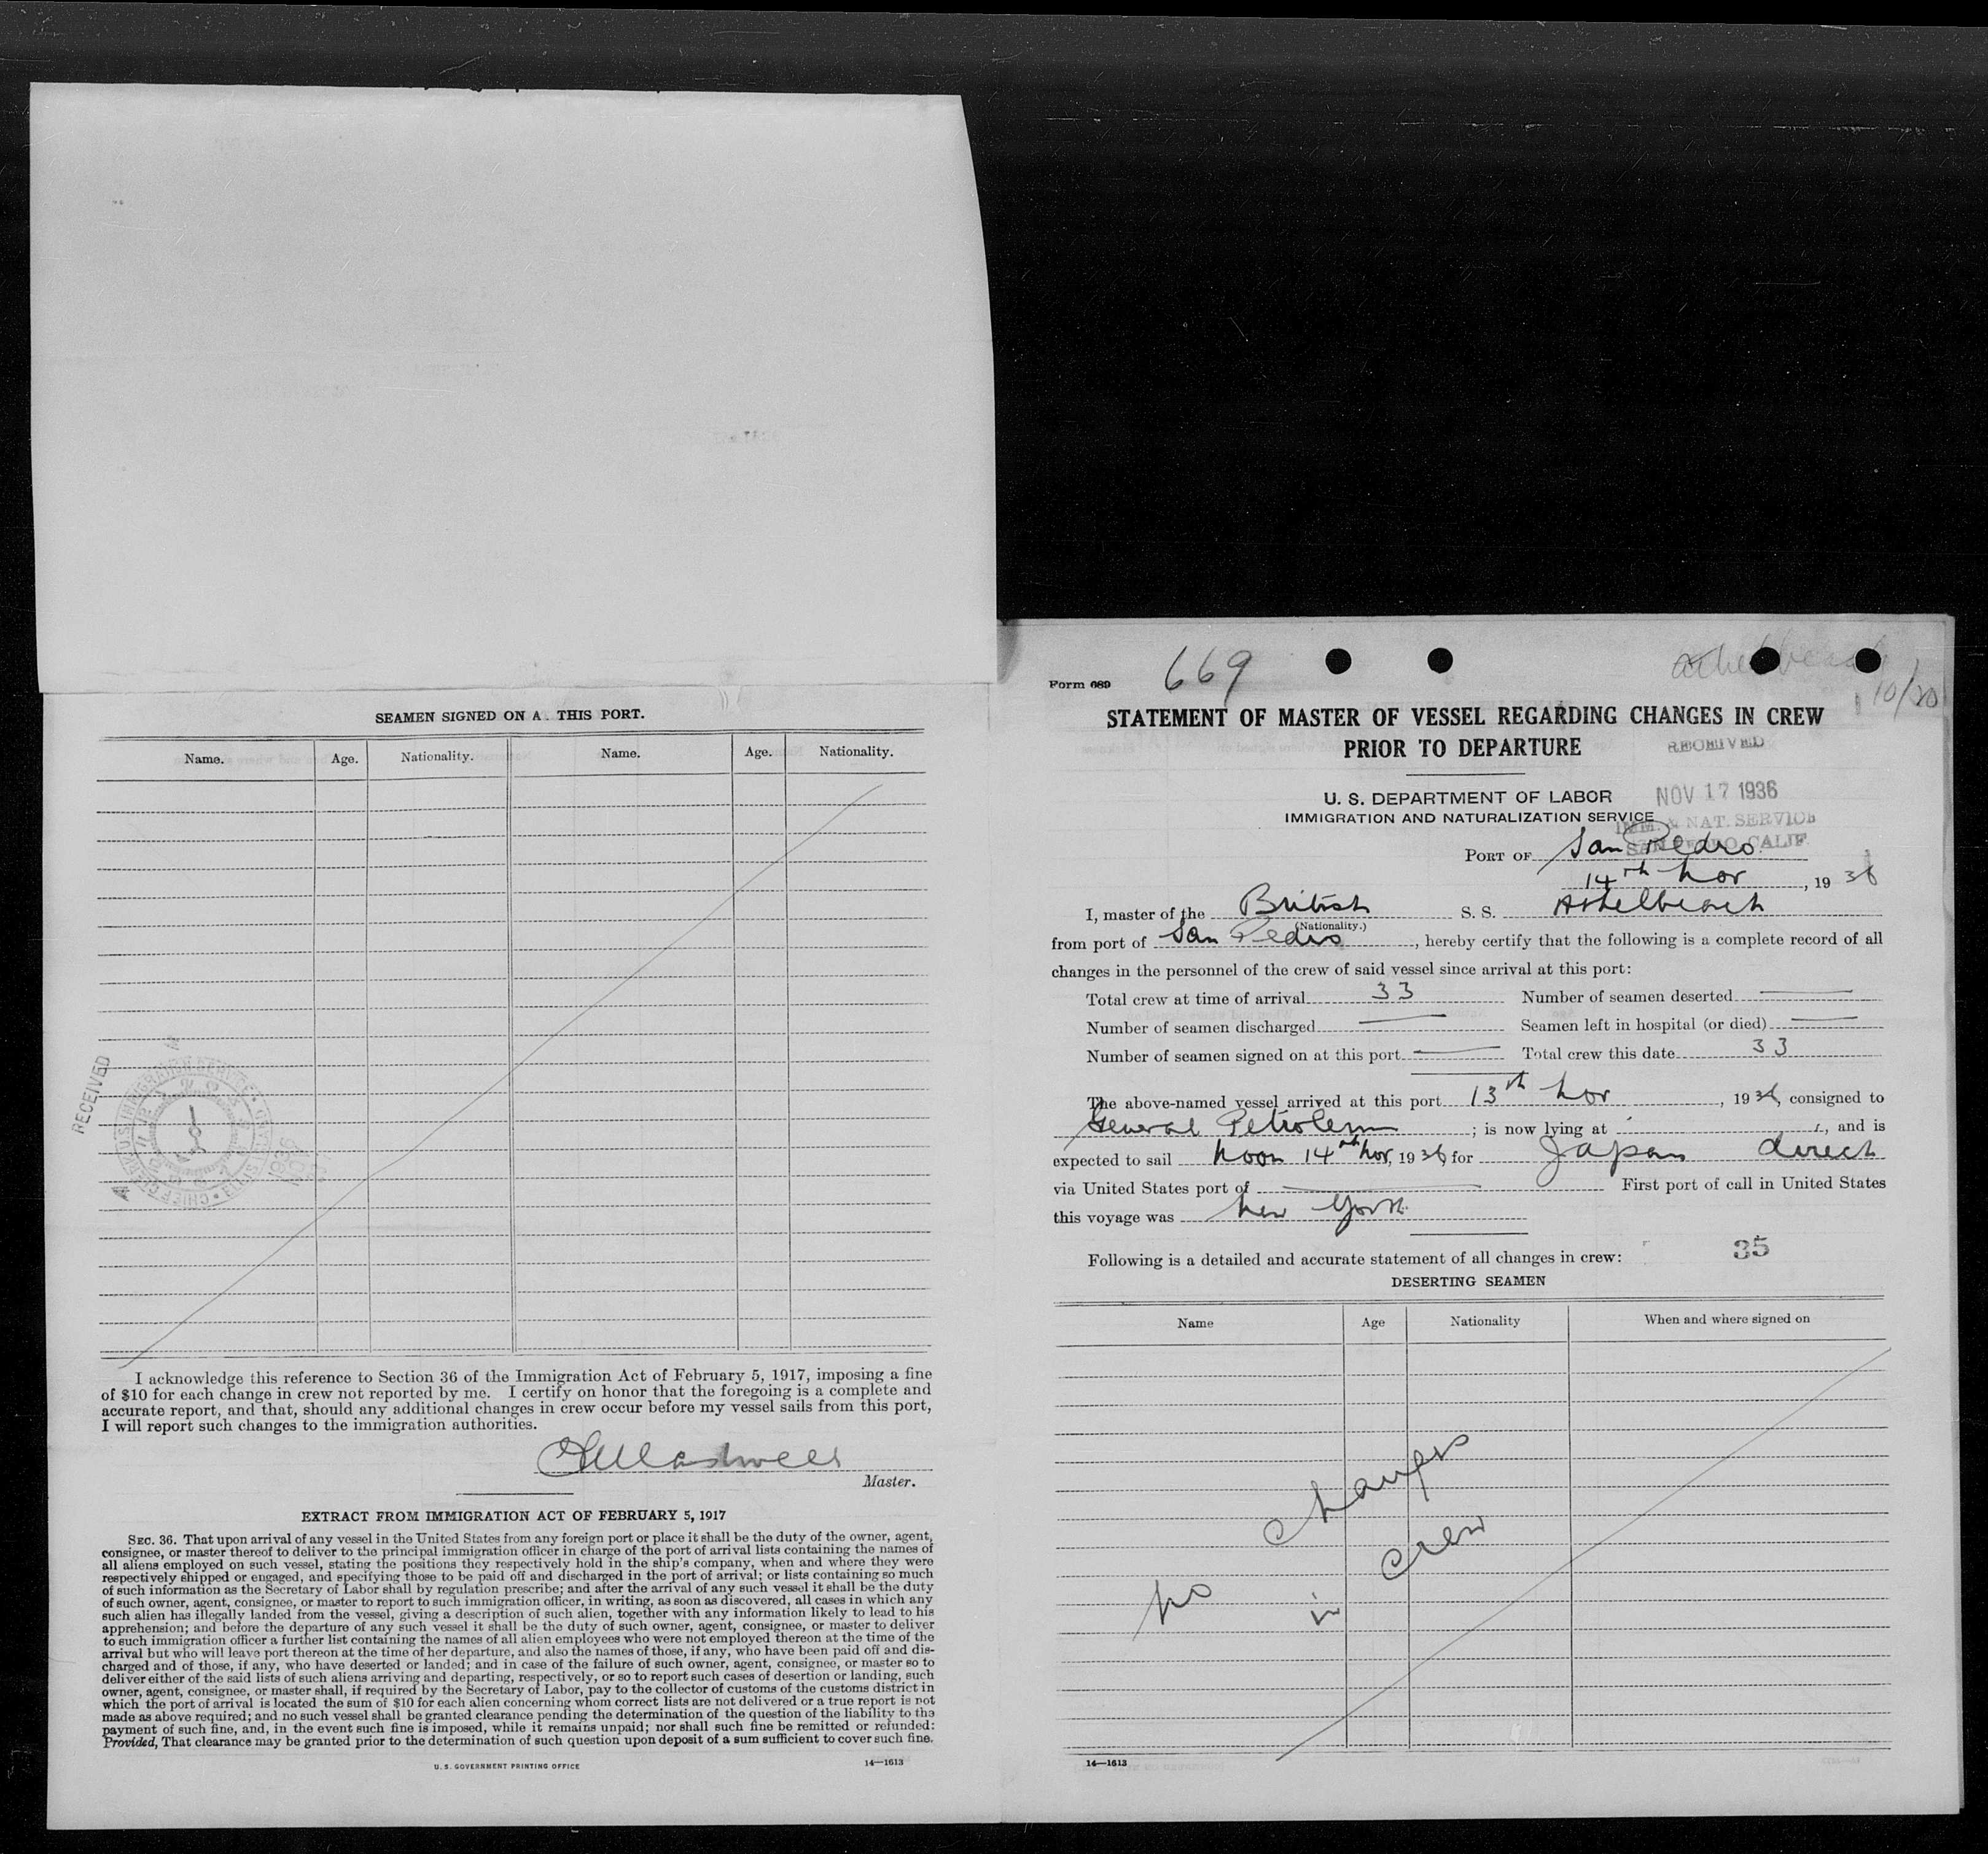 SEAMEN SIGNED ON A. THIS PORT.
Name. Age. Nationality. Name. Age. Nationality.
RECEIVED
I acknowledge this reference to Section 36 of the Immigration Act of February 5, 1917, imposing a fine
of $10 for each change in crew not reported by me. I certify on honor that the foregoing is a complete and
accurate report, and that, should any additional changes in crew occur before my vessel sails from this port,
I will report such changes to the immigration authorities.
Master.
EXTRACT FROM IMMIGRATION ACT OF FEBRUARY 5, 1917
SEC. 36. That upon arrival of any vessel in the United States from any foreign port or place it shall be the duty of the owner, agent,
consignee, or master thereof to deliver to the principal immigration officer in charge of the port of arrival lists containing the names of
all aliens employed on such vessel, stating the positions they respectively hold in the ship's company, when and where they were
respectively shipped or engaged, and specifying those to be paid off and discharged in the port of arrival; or lists containing so much
of such information as the Secretary of Labor shall by regulation prescribe; and after the arrival of any such vessel it shall be the duty
of such owner, agent, consignee, or master to report to such immigration officer, in writing, as soon as discovered, all cases in which any
such alien has illegally landed from the vessel, giving a description of such alien, together with any information likely to lead to his
apprehension; and before the departure of any such vessel it shall be the duty of such owner, agent, consignee, or master to deliver
to such immigration officer a further list containing the names of all alien employees who were not employed thereon at the time of the
arrival but who will leave port thereon at the time of her departure, and also the names of those, if any, who have been paid off and dis-
charged and of those, if any, who have deserted or landed; and in case of the failure of such owner, agent, consignee, or master so to
deliver either of the said lists of such aliens arriving and departing, respectively, or so to report such cases of desertion or landing, such
owner, agent, consignee, or master shall, if required by the Secretary of Labor, pay to the collector of customs of the customs district in
which the port of arrival is located the sum of $10 for each alien concerning whom correct lists are not delivered or a true report is not
made as above required; and no such vessel shall be granted clearance pending the determination of the question of the liability to the
payment of such fine, and, in the event such fine is imposed, while it remains unpaid; nor shall such fine be remitted or refunded:
Provided, That clearance may be granted prior to the determination of such question upon deposit of a sum sufficient to cover such fine.
U. S. GOVERNMENT PRINTING OFFICE 14—1613
Form 689 669 Athelbeach
10/20
STATEMENT OF MASTER OF VESSEL REGARDING CHANGES IN CREW
PRIOR TO DEPARTURE
RECEIVED
U. S. DEPARTMENT OF LABOR
NOV 17 1936
IMMIGRATION AND NATURALIZATION SERVICE
IMM. & NAT. SERVICE
SAN PEDRO, CALIF.
PORT OF San Pedro
14th Nov, 1936
I, master of the British S. S. Athelbeach
(Nationality.)
from port of San Pedro, hereby certify that the following is a complete record of all
changes in the personnel of the crew of said vessel since arrival at this port:
Total crew at time of arrival 33 Number of seamen deserted —
Number of seamen discharged — Seamen left in hospital (or died) —
Number of seamen signed on at this port — Total crew this date 33
The above-named vessel arrived at this port 13th Nov, 1936, consigned to
General Petroleum; is now lying at , and is
expected to sail Noon 14th Nov, 1936 for Japan direct
via United States port of — First port of call in United States
this voyage was New York
Following is a detailed and accurate statement of all changes in crew: 35
DESERTING SEAMEN
Name Age Nationality When and where signed on
No changes
in crew
14—1613